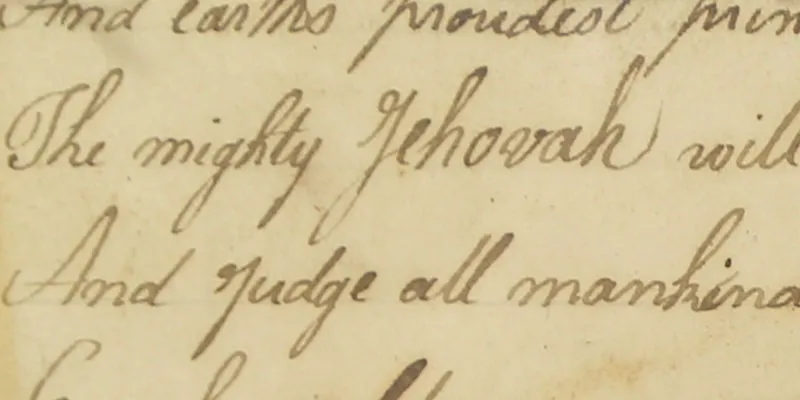 And earths proudest prin
The mighty Jehovah will
And Judge all mankind